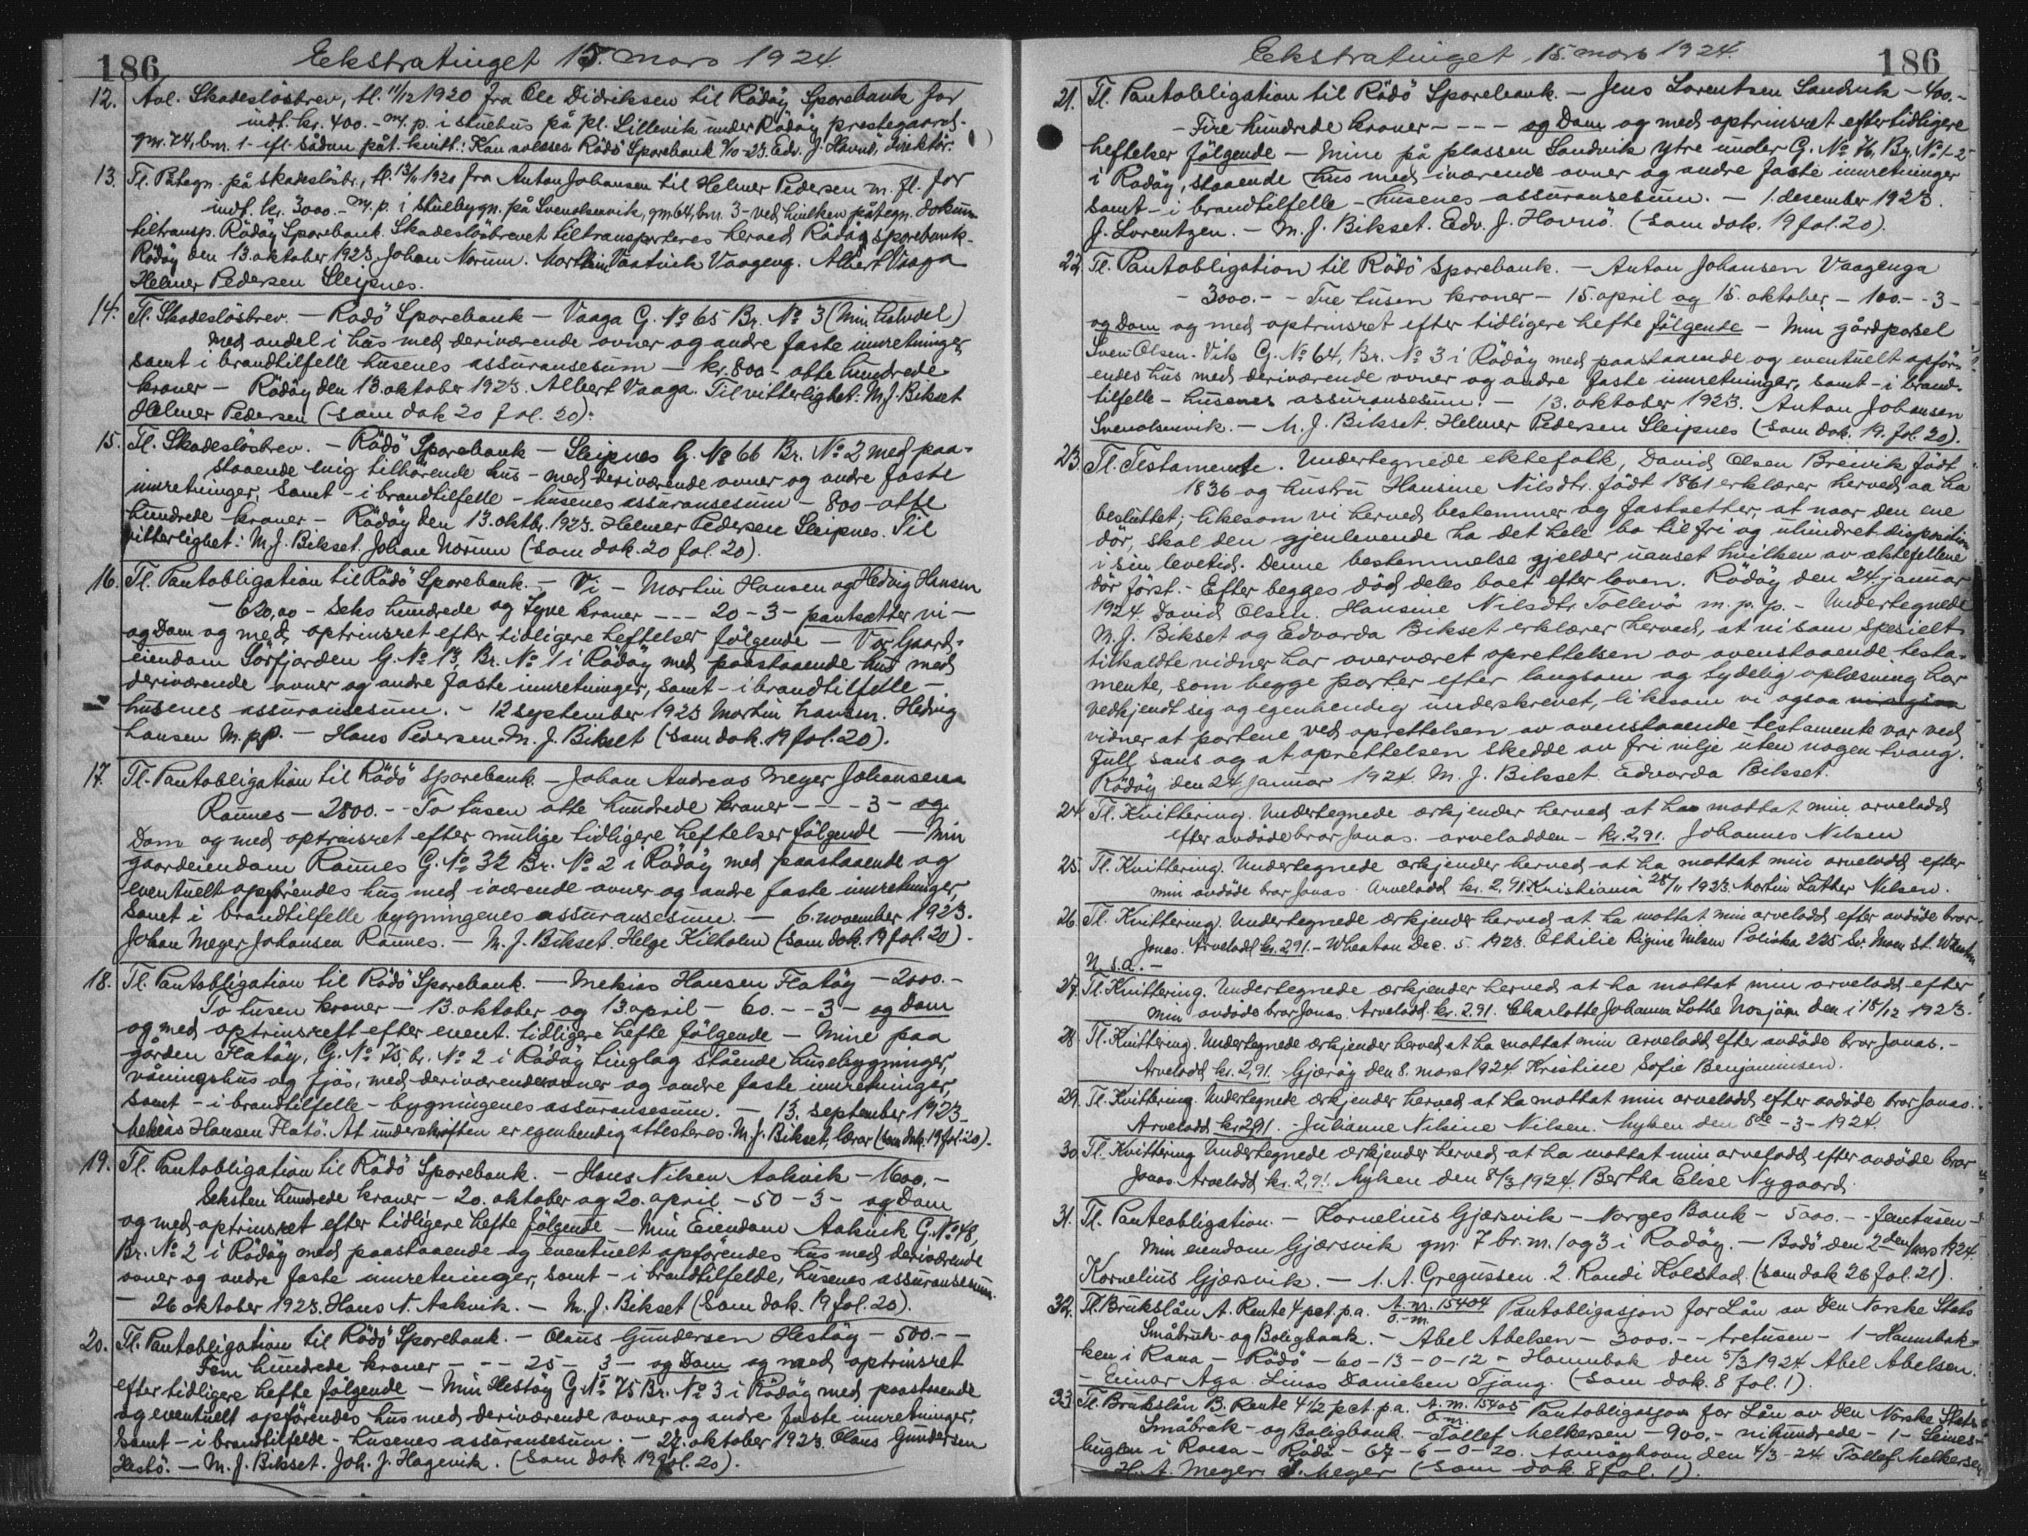 186
Ekstratinget 15. mars 1924.
12. Avl. Skadesløsbrev, tl. 11/12 1920 fra Ole Didriksen til Rödöy Sparebank for
indt. kr. 400.- m. p. i stuehus på pl. Lillevik under Rödöy prestegaard.
gnr. 74, bnr. 1 - ifl. sådan påt. kvitt.: Kan avleses Rödö Sparebank 9/10-23. Edv. J. Havnö, direktör.
13. Tl. Påtegn. på skadeslösbr., tl. 13/11 1920 fra Anton Johansen til Helmer Pedersen m. fl. for
indt. kr. 3000.- m. p. i stuebygn. på Svenolsenvik, gnr 64, bnr. 3 - ved hvilken påtegn. dokum.
tiltransp. Rödöy Sparebank. Skadeslösbrevet tiltransporteres herved Rödöy sparebank.
Rödöy den 13. oktober 1923. Johan Norum. Vaageng. Albert Vaaga
Helmer Pedersen Sleipnes.
14. Tl. Skadeslösbrev. - Rödö Sparebank - Vaaga G. No 65 Br. No 3 (Min halvdel)
med andel i hus med deriværende ovner og andre faste innretninger,
samt i brandtilfelle husenes assuransesum - kr. 800 - otte hundrede
kroner - Rödöy den 13. oktober 1923. Albert Vaaga. Til vitterlighet: M. J. Bikset
Helmer Pedersen (som dok 20 fol. 20).
15. Tl. Skadeslösbrev. - Rödö Sparebank - Sleipnes G. No 66 Br. No 2 med paa-
staaende mig tilhörende hus - med deriværende ovner og andre faste
innretninger, samt - i brandtilfelle - husenes assuransesum - 800 - otte
hundrede kroner - Rödöy den 13. oktbr. 1923. Helmer Pedersen Sleipnes. Til
vitterlighet: M. J. Bikset. Johan Norum (som dok. 20 fol. 20).
16. Tl. Pantobligation til Rödö Sparebank. - Vi - Martin Hansen og Hedvig Hansen
- 620,00 - Seks hundrede og tyve kroner - - - 20 - 3 - pantsætter vi -
og Dom og med optrinsret efter tidligere heftelser følgende - Vor Gaard-
eiendom Sörfjorden G. No 13, Br. No 1 i Rödöy med paastaaende hus med
deriværende ovner og andre faste innretninger, samt - i brandtilfelle -
husenes assuransesum. - 12 september 1923 Martin Hansen. Hedvig
Hansen m. p. p. - Hans Pedersen. M. J. Bikset (som dok. 19 fol. 20).
17. Tl. Pantobligation til Rödö sparebank - Johan Andreas Meyer Johansen
Rannes - 2800.- - To tusen otte hundrede kroner - - - 3 - og
Dom og med optrinsret efter mulige tidligere heftelser følgende - Min
gaardeiendom Rannes G. No 32 Br. No 2 i Rödöy med paastaaende og
eventuelt opförendes hus med iværende ovner og andre faste innretninger
Samt i brandtilfelle bygningenes assuransesum. - 6. november 1923.
Johan Meyer Johansen Rannes. - M. J. Bikset. Helge Kilholm (som dok. 19 fol. 20).
18. Tl. Pantobligation til Rödö Sparebank. - Mekias Hansen Flatöy - 2000.-
To tusen kroner - 13. oktober og 13. april - 60. - - 3 - og Dom
og med optrinsrett efter event. tidligere hefte følgende - Mine paa
gården Flatöy, G. No 75, br. No 2 i Rödöy tinglag stående husebygninger,
våningshus og fjös, med deriværende ovner og andre faste innretninger,
samt - i brandtilfelle - bygningenes assuransesum. - 13. september 1923.
Mekias Hansen Flatö. At underskriften er egenhendig attesteres. M. J. Bikset, lærer (som dok. 19 fol. 20).
19. Tl. Pantobligation til Rödö Sparebank. - Hans Nilsen Aakvik - 1600.-
Seksten hundrede kroner - 20. oktober og 20. april - 50 - 3 - og Dom
og med optrinsret efter tidligere hefte følgende - Min Eiendom Aakvik G. No 48,
Br. No 2 i Rödöy med paastaaende og eventuelt opförendes hus med deriværende
ovner og andre faste innretninger, samt - i brandtilfelle, husenes assuransesum.
- 26 oktober 1923. Hans N. Aakvik. - M. J. Bikset (som dok. 19 fol. 20).
20. Tl. Pantobligation til Rödö Sparebank. - Olaus Gundersen Hestöy - 500.- -
Fem hundrede kroner - - - 25 - 3 - og Dom og med optrinsret
efter tidligere hefte følgende - Min Hestöy G. No 75 Br. No 3 i Rödöy med paastaaende
og eventuelt opförendes hus med deriværende ovner og andre faste innretninger,
samt - i brandtilfelde - husenes assuransesum. - 27. oktober 1923. Olaus Gundersen
Hestö. - M. J. Bikset. Joh. J. Hagevik. (som dok 19 fol. 20).
Ekstratinget 15. mars 1924.
186
21. Tl. Pantobligation til Rödö Sparebank. - Jens Lorentsen Sandvik - 400.-
- Fire hundrede kroner - - - - og Dom og med optrinsret efter tidligere
heftelser følgende - Mine på plassen Sandvik ytre under G. No 76, Br. No 1-2
i Rödöy, staaende hus med iværende ovner og andre faste innretninger
samt - i brandtilfelle - husenes assuransesum. - 1. desember 1923.
J. Lorentzen. - M. J. Bikset. Edv. J. Havnö. (som dok. 19 fol. 20).
22. Tl. Pantobligation til Rödö sparebank. - Anton Johansen Vaagenga
- 3000.- - Tre tusen kroner - 15. april og 15. oktober - 100.- - 3 -
og Dom og med optrinsret efter tidligere hefte følgende - Min gårdparsel
Sven-Olsen-Vik G. No 64, Br. No 3 i Rödöy med paastaaende og eventuelt opför-
endes hus med deriværende ovner og andre faste innretninger, samt - i brand-
tilfelle - husenes assuransesum. - 13. oktober 1923. Anton Johansen
Svenolsenvik. - M. J. Bikset. Helmer Pedersen Sleipnes (som dok. 19. fol. 20).
23. Tl. Testamente. Undertegnede ektefolk, David Olsen Breivik födt
1836 og hustru Hansine Nilsdtr. födt 1861 erklærer herved aa ha
besluttet, likesom vi herved bestemmer og fastsetter, at naar den ene
dör, skal den gjenlevende ha det hele bo til fri og uhindret disposition
i sin levetid. Denne bestemmelse gjelder uanset hvilken av ektefellene
dör först. - Efter begges död deles boet efter loven. Rödöy den 24. januar
1924. David Olsen. Hansine Nilsdtr Tollevö m. p. p. - Undertegnede
M. J. Bikset og Edvarda Bikset erklærer herved, at vi som spesielt
tilkaldte vidner har overværet oprettelsen av ovenstaaende testa-
mente, som begge parter efter langsom og tydelig oplæsning har
vedkjendt seg og egenhendig underskrevet, likesom vi ogsaa
vidner at partene ved oprettelsen av ovenstaaende testamente var ved
full sans og at oprettelsen skedde av fri vilje uten nogen tvang.
Rödöy den 24 januar 1924. M. J. Bikset. Edvarda Bikset.
24. Tl. Kvittering. Undertegnede erkjender herved at ha mottat min arvelodd
efter avdöde bror Jonas. arvelodden - kr. 2,91. Johannes Nilsen
25. Tl. Kvittering. Undertegnede erkjender herved at ha mottat min arvelodd efter
min avdöde bror Jonas. Arvelodd kr. 2,91. Kristiania 28/11 1923. Martin Luther Nilsen.
26. Tl. Kvittering. Undertegnede erkjender herved at ha mottat min arvelodd efter avdöde bror
Jonas. Arvelodd kr. 2,91. - Wheaton Dec. 5 1923. Othilie Rigine Nilsen 225 So. Main St. Wheaton
U. S. A. -
27. Tl. Kvittering. Undertegnede erkjender herved at ha mottat min arvelodd efter
min avdöde bror Jonas. Arvelodd. kr. 2,91. Charlotte Johanna Lothe Mosjöen den i 18/12 1923.
28. Tl. Kvittering. Undertegnede erkjender herved at ha mottat min arvelodd efter avdöde bror Jonas. -
Arvelodd kr. 2,91. Gjeröy den 8. mars 1924 Kristine Sofie Benjaminsen.
29. Tl. Kvittering. Undertegnede erkjender herved at ha mottat min arvelodd efter avdöde bror Jonas.
Arvelodd kr 2,91. - Julianne Nilsine Nilsen. Myken den 8de - 3 - 1924.
30. Tl. Kvittering Undertegnede erkjender herved at ha mottat min arvelodd efter avdöde bror
Jonas. Arvelodd kr. 2,91. Myken den 8/3 1924. Bertha Elise Nygaard.
31. Tl. Panteobligation. - Kornelius Gjærsvik - Norges Bank - 5000.- - femtusen -
Min eiendom Gjærsvik gnr. 7 br. m. 1 og 3 i Rödöy. - Bodö den 2den mars 1924.
Kornelius Gjærsvik. - 1. A. Gregussen. 2. Randi Kolstad. (som dok 26 fol. 21).
32. Tl. Brukslån A. Rente 4 pct. p. a. A. m. 15404 Pantobligasjon for Lån av Den Norske Stats
Småbruk- og Boligbank. - Abel Abelsen - 3000. - - tretusen - 1 - Hammbak-
ken i Rana - Rödö - 60 - 13 - 0 - 12 - Hammbak den 5/3 1924 Abel Abelsen.
- Einar Aga. Linus Danielsen Tjong. (som dok. 8 fol. 1).
33. Tl. Brukslån B. Rente 4 1/2 pct. p. a. A. m. 15405 Pantobligasjon for Lån av Den Norske Stats
Småbruk- og Boligbank - Tollef Melkersen - 900.- nihundrede - 1 -
i Rana - Rödö - 67 - 6 - 0 - 20. den 4/3 - 24 Tollef Melkersen
- H. A. Meyer. Meyer (som dok. 8 fol. 1).